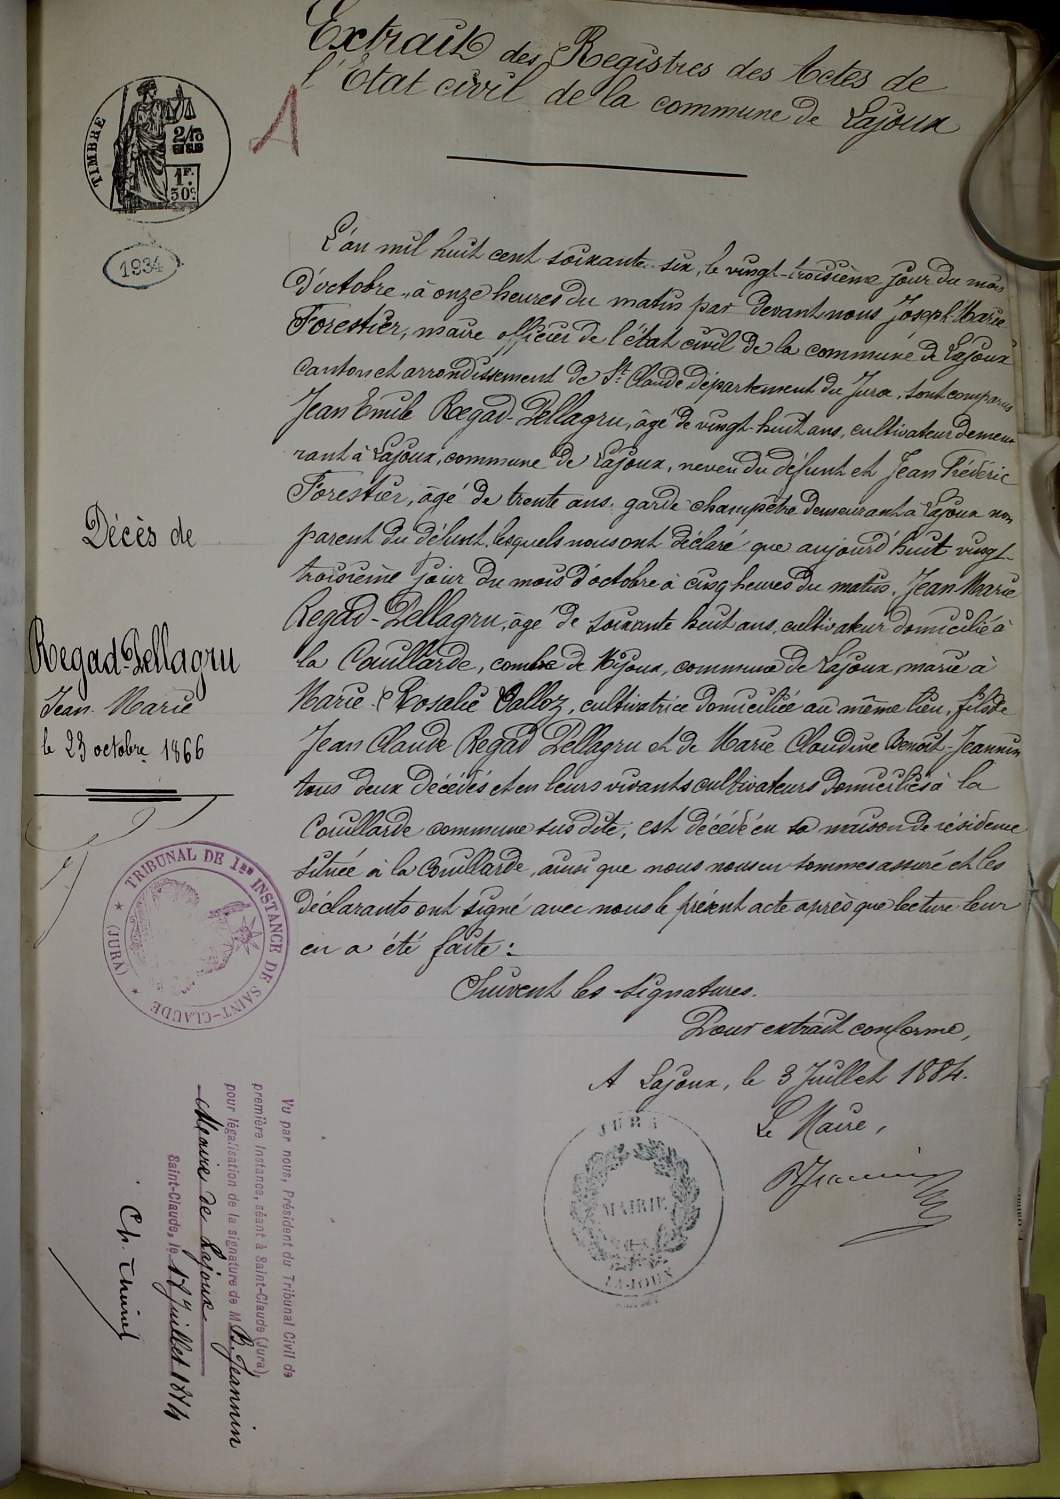 Extrait des Registres des Actes de
l'Etat civil de la commune de Lajoux
TIMBRE
2/10
EN SUS
1F.
50c.
1
1934
L'an mil huit cent soixante-six, le vingt-troisième jour du mois
d'octobre, à onze heures du matin par devant nous Joseph Marie
Forestier, maire officier de l'état civil de la commune de Lajoux
canton et arrondissement de St Claude département du Jura, sont comparus
Jean Emile Regad-Pellagru, âgé de vingt-huit ans, cultivateur demeu-
rant à Lajoux, commune de Lajoux, neveu du défunt et Jean Frédéric
Forestier, âgé de trente ans, garde champêtre demeurant à Lajoux non
parent du défunt, lesquels nous ont déclaré que aujourd'huit vingt-
troisième jour du mois d'octobre à cinq heures du matin, Jean-Marie
Regad-Pellagru, âgé de soixante huit ans, cultivateur domicilié à
la Couillarde, combe de Mijoux, commune de Lajoux, marié à
Marie Rosalie Galloz, cultivatrice domiciliée au même lieu, fils de
Jean Claude Regad Pellagru et de Marie Claudine Benoit-Jeannin
tous deux décédés et en leurs vivants cultivateurs domiciliés à la
Couillarde commune susdite, est décédé en sa maison de résidence
située à la Couillarde, ainsi que nous nous en sommes assuré et les
déclarants ont signé avec nous le présent acte après que lecture leur
en a été faite :
Suivent les signatures.
Pour extrait conforme,
A Lajoux, le 3 Juillet 1884.
Le Maire,
B Jeannin
Décès de
Regad-Pellagru
Jean Marie
le 23 octobre 1866
TRIBUNAL DE 1ère INSTANCE DE SAINT-CLAUDE
(JURA)
JURA
MAIRIE
LAJOUX
Vu par nous, Président du Tribunal Civil de
première Instance, séant à Saint-Claude (Jura),
pour légalisation de la signature de M. B. Jeannin
Maire de Lajoux
Saint-Claude, le 17 Juillet 1884